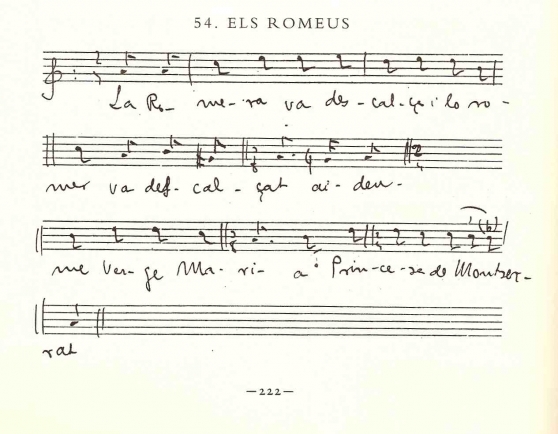 54. ELS ROMEUS
La Ro- me-ra va des-cal-ça i lo ro-
mer va des-cal-çat ai-deu-
me Ver-ge Ma-ri-a Prin-ce-sa de Montser-
rat
—222—